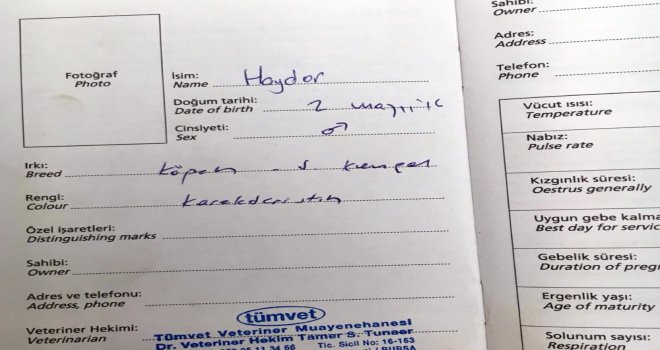 Fotoğraf
Photo
İsim: Haydar
Name
Doğum tarihi: 2 mayıs'16
Date of birth
Cinsiyeti: ♂
Sex
Irkı: Köpek - kangal
Breed
Rengi: Karakteristik
Colour
Özel işaretleri:
Distinguishing marks
Sahibi:
Owner
Adres ve telefonu:
Address, phone
Veteriner Hekimi:
Veterinarian
tümvet
Tümvet Veteriner Muayenehanesi
Dr. Veteriner Hekim Tamer S. Tunaer
Tic. Sicil No: 16-163
Sahibi:
Owner
Adres:
Address
Telefon:
Phone
Vücut ısısı:
Temperature
Nabız:
Pulse rate
Kızgınlık süresi:
Oestrus generally
Uygun gebe kalma
Best day for servic
Gebelik süresi:
Duration of preg
Ergenlik yaşı:
Age of maturity
Solunum sayısı:
Respiration